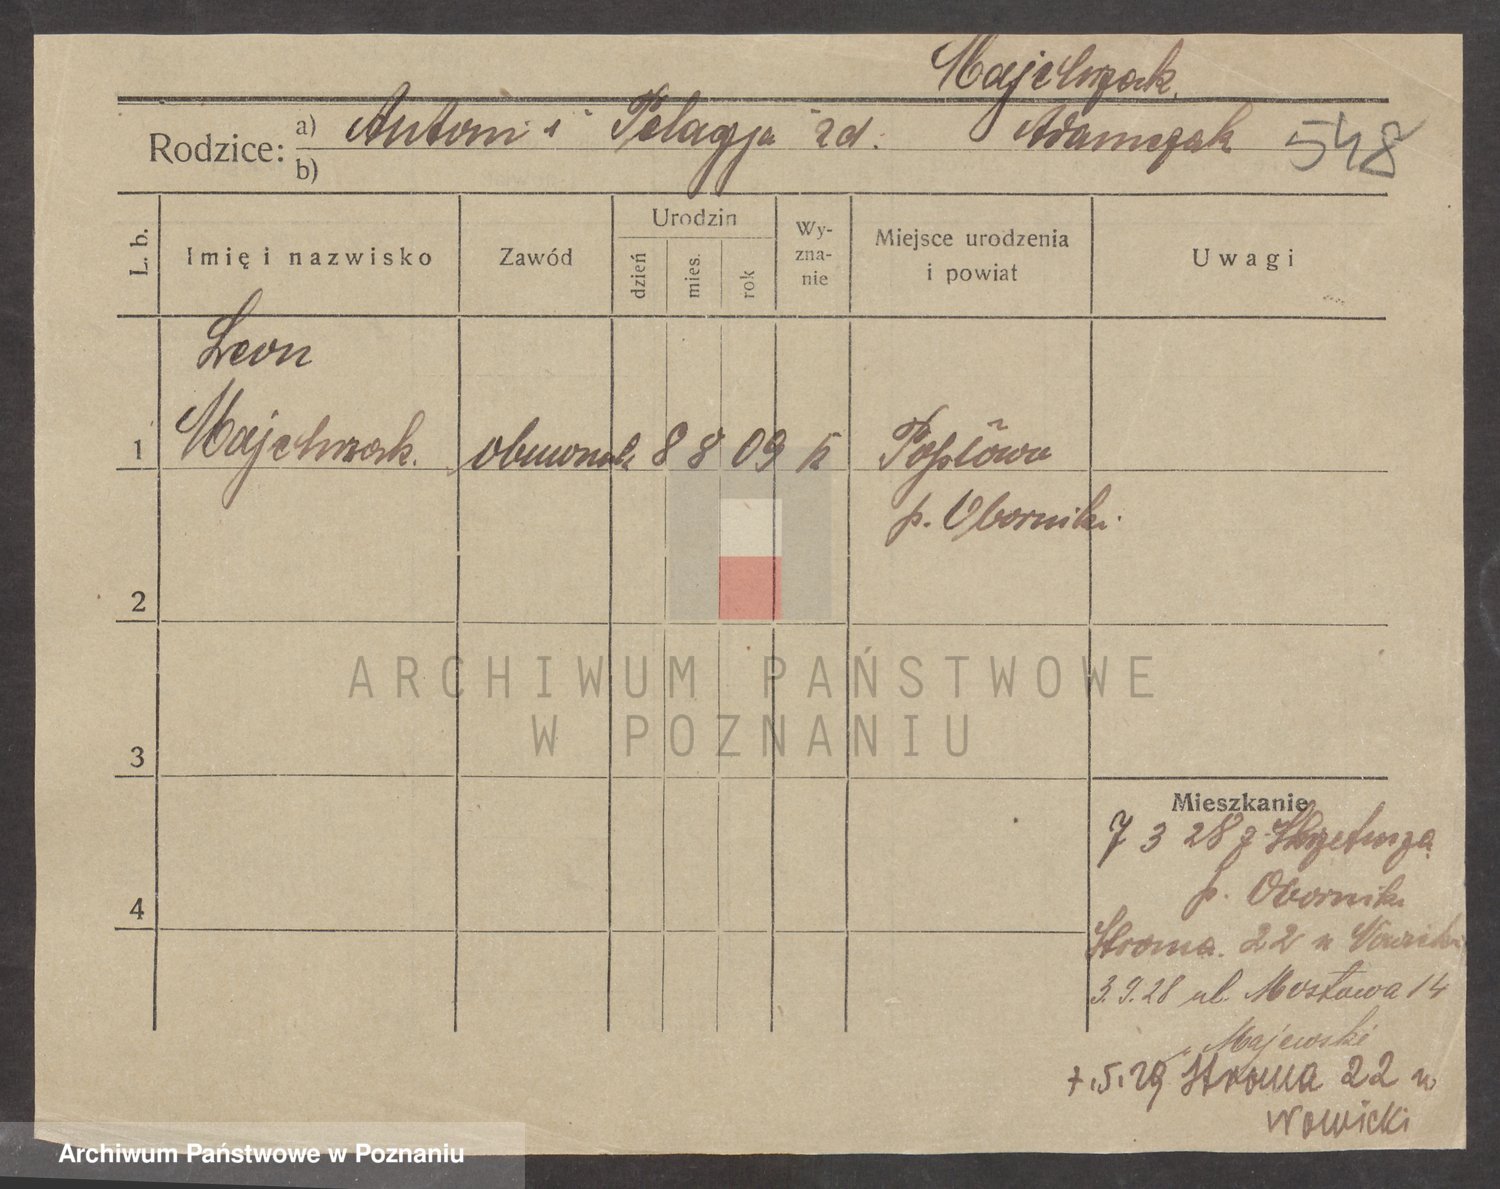 Majchrzak
Rodzice: a) Antoni i Pelagja zd. Adamczak 548
b)
L. b. Imię i nazwisko Zawód Urodzin dzień mies. rok Wyznanie Miejsce urodzenia i powiat Uwagi
Leon
1 Majchrzak. 8 8 09 k
p. Oborniki.
2
ARCHIWUM PAŃSTWOWE
W POZNANIU
3
Mieszkanie
7 3 28 z Skrzetusza
4 p. Oborniki
Stroma 22 u Nowicki
3.9.28 ul. Mostowa 14
Majewski
7.5.29 Stroma 22 u
Nowicki
Archiwum Państwowe w Poznaniu